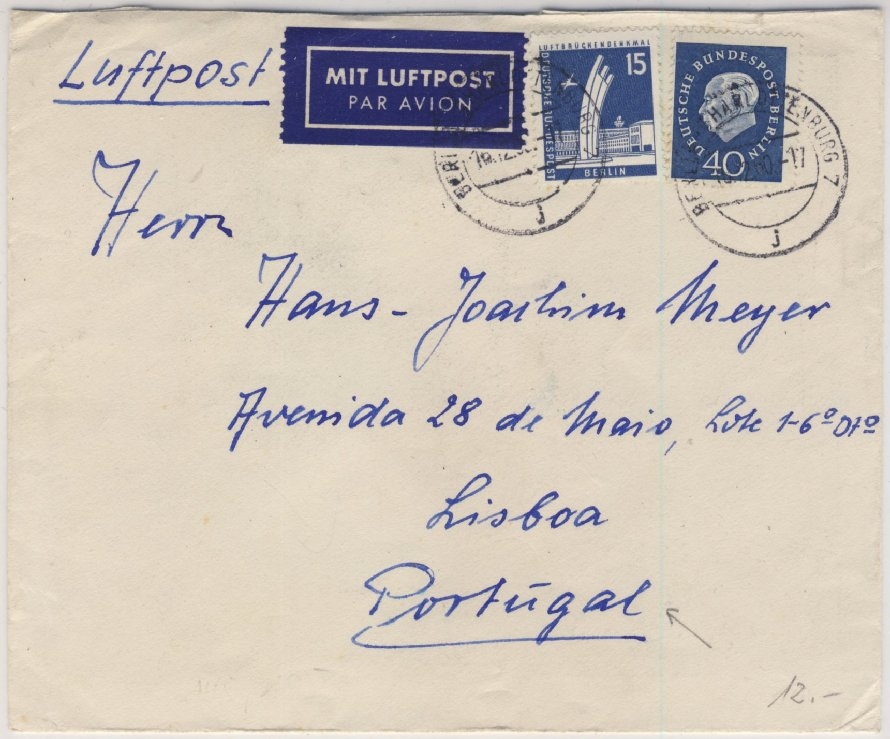 Luftpost
MIT LUFTPOST
PAR AVION
LUFTBRÜCKENDENKMAL
15
DEUTSCHE BUNDESPOST
BERLIN
DEUTSCHE BUNDESPOST BERLIN
40
j
j
Herrn
Hans-Joachim Meyer
Avenida 28 de Maio, Lote 1-6º Dtº
Lisboa
Portugal
12.-